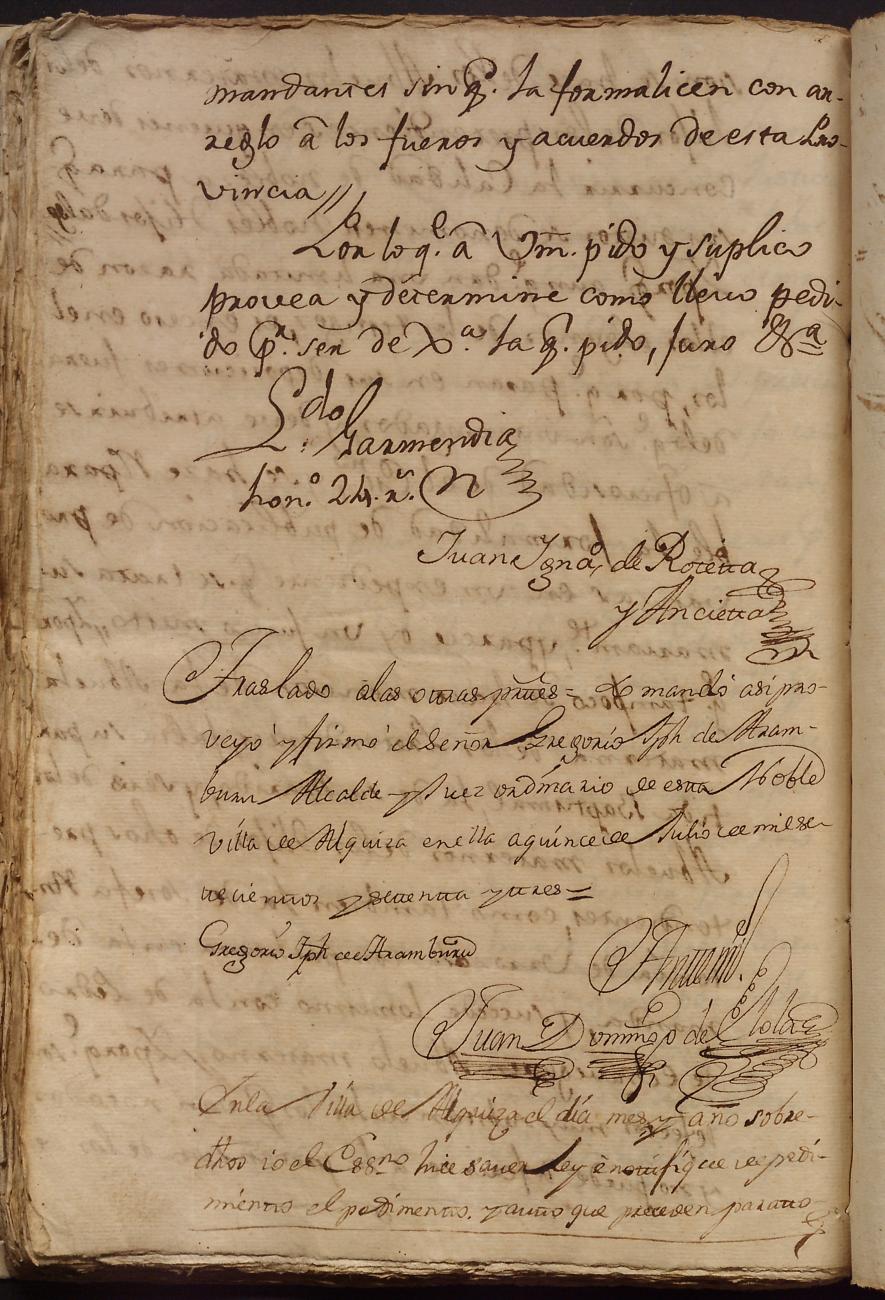 mandantes sin q.e la formalicen con ar-
reglo â los fueros y acuerdos de esta Pro-
vincia //
Por lo q.e â Vm. pido y suplico
provea y determine como llevo pedi-
do p.r ser de Xa. la q.e pido, juro &a
L.do Garmendia
hon.o 24. r.s
Juan Ign.o de Roteta
y Ancieta
Traslado alas otras partes = Lo mandó asi pro-
veyó y firmó el Señor Gregorio Jph de Aram-
buru Alcalde y Juez ordinario de esta Noble
villa de Alquiza en ella a quince de Julio de mil se-
tecientos y setenta y tres =
Gregorio Jph de Aramburu
Antemi.
Juan Domingo de
En la Villa de Alquiza el día mes y año sobre-
dhos io el Essno hice saver Ley è notifique de pedi-
miento el pedimento. y auto que preceden para